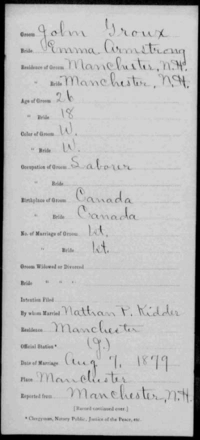 Groom John Groux
Bride Emma Armstrong
Residence of Groom Manchester, N.H.
" Bride Manchester, N.H.
Age of Groom 26
" Bride 18
Color of Groom W.
" Bride W.
Occupation of Groom Laborer
" Bride
Birthplace of Groom Canada
" Bride Canada
No. of Marriage of Groom 1st.
" Bride 1st.
Groom Widowed or Divorced
Bride " "
Intention Filed
By whom Married Nathan P. Kidder
Residence Manchester
Official Station* (J.)
Date of Marriage Aug 7, 1879
Place Manchester
Reported from Manchester, N.H.
[Record continued over.]
* Clergyman, Notary Public, Justice of the Peace, etc.